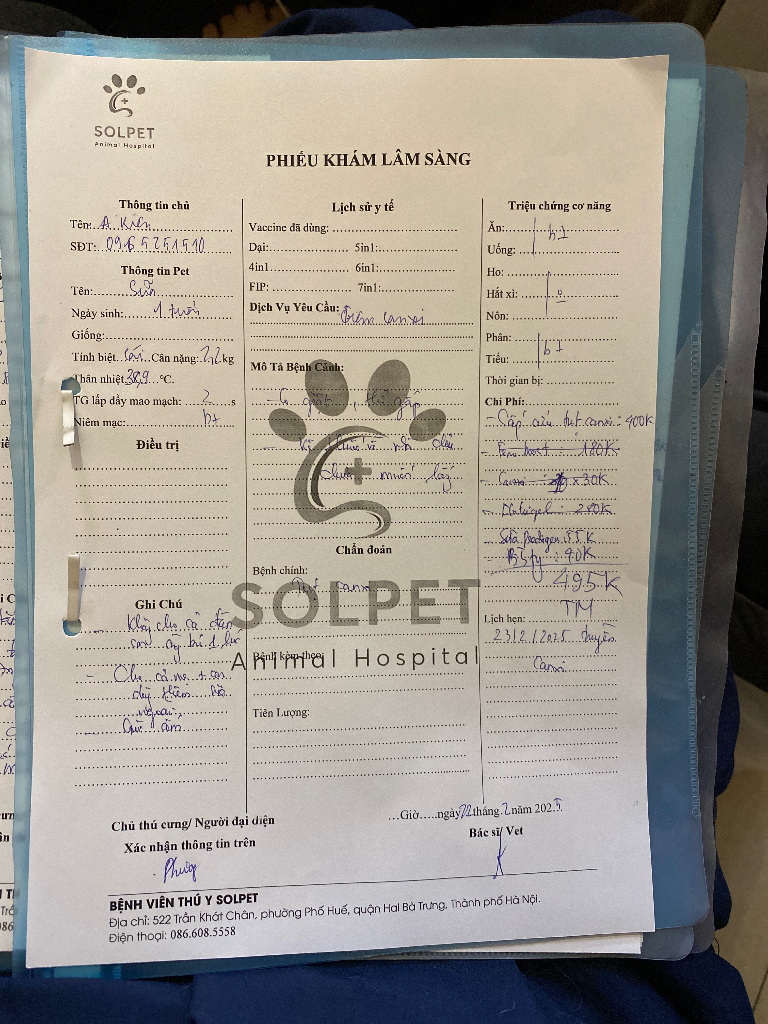 SOLPET
Animal Hospital
PHIẾU KHÁM LÂM SÀNG
Thông tin chủ
Tên: A Kiên
SĐT: 0965251510
Thông tin Pet
Tên: Sữa
Ngày sinh: 1 tuổi
Giống:
Tính biệt: Cái Cân nặng: 2,2 kg
Thân nhiệt 38,9 °C.
TG lấp đầy mao mạch: 2 s
Niêm mạc: bt
Điều trị
Ghi Chú
- Không cho cả đàn
con
- Cho cả mẹ + con
ngoài,
Giữ ấm
Lịch sử y tế
Vaccine đã dùng:
Dại: 5in1:
4in1 6in1:
FIP: 7in1:
Dịch Vụ Yêu Cầu: Tiêm canxi
Mô Tả Bệnh Cảnh:
- Co giật, thở gấp
Chẩn đoán
Bệnh chính:
Tụt canxi
Bệnh kèm theo:
Tiên Lượng:
SOLPET
Animal Hospital
Triệu chứng cơ năng
Ăn:
Uống: bt
Ho:
Hắt xì: 0
Nôn:
Phân:
Tiểu: bt
Thời gian bị:
Chi Phí:
- Cấp cứu tụt canxi: 400K
180K
- Canxi: x 30K
280K
Sữa 55K
: 40K
495K
TM
Lịch hẹn:
23/2/2025 truyền
Canxi
Chủ thú cưng/ Người đại diện
Xác nhận thông tin trên
Phương
...Giờ.....ngày 22 tháng 2 năm 2025
Bác sĩ/ Vet
BỆNH VIÊN THÚ Y SOLPET
Địa chỉ: 522 Trần Khát Chân, phường Phố Huế, quận Hai Bà Trưng, Thành phố Hà Nội.
Điện thoại: 086.608.5558